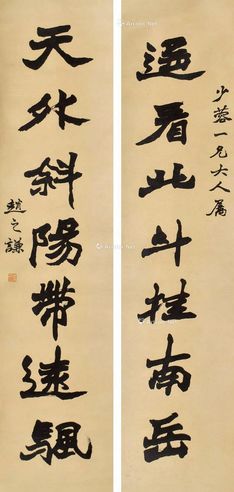 少蓉一兄大人屬
遥看北斗挂南岳
天外斜陽帶遠颿
趙之謙